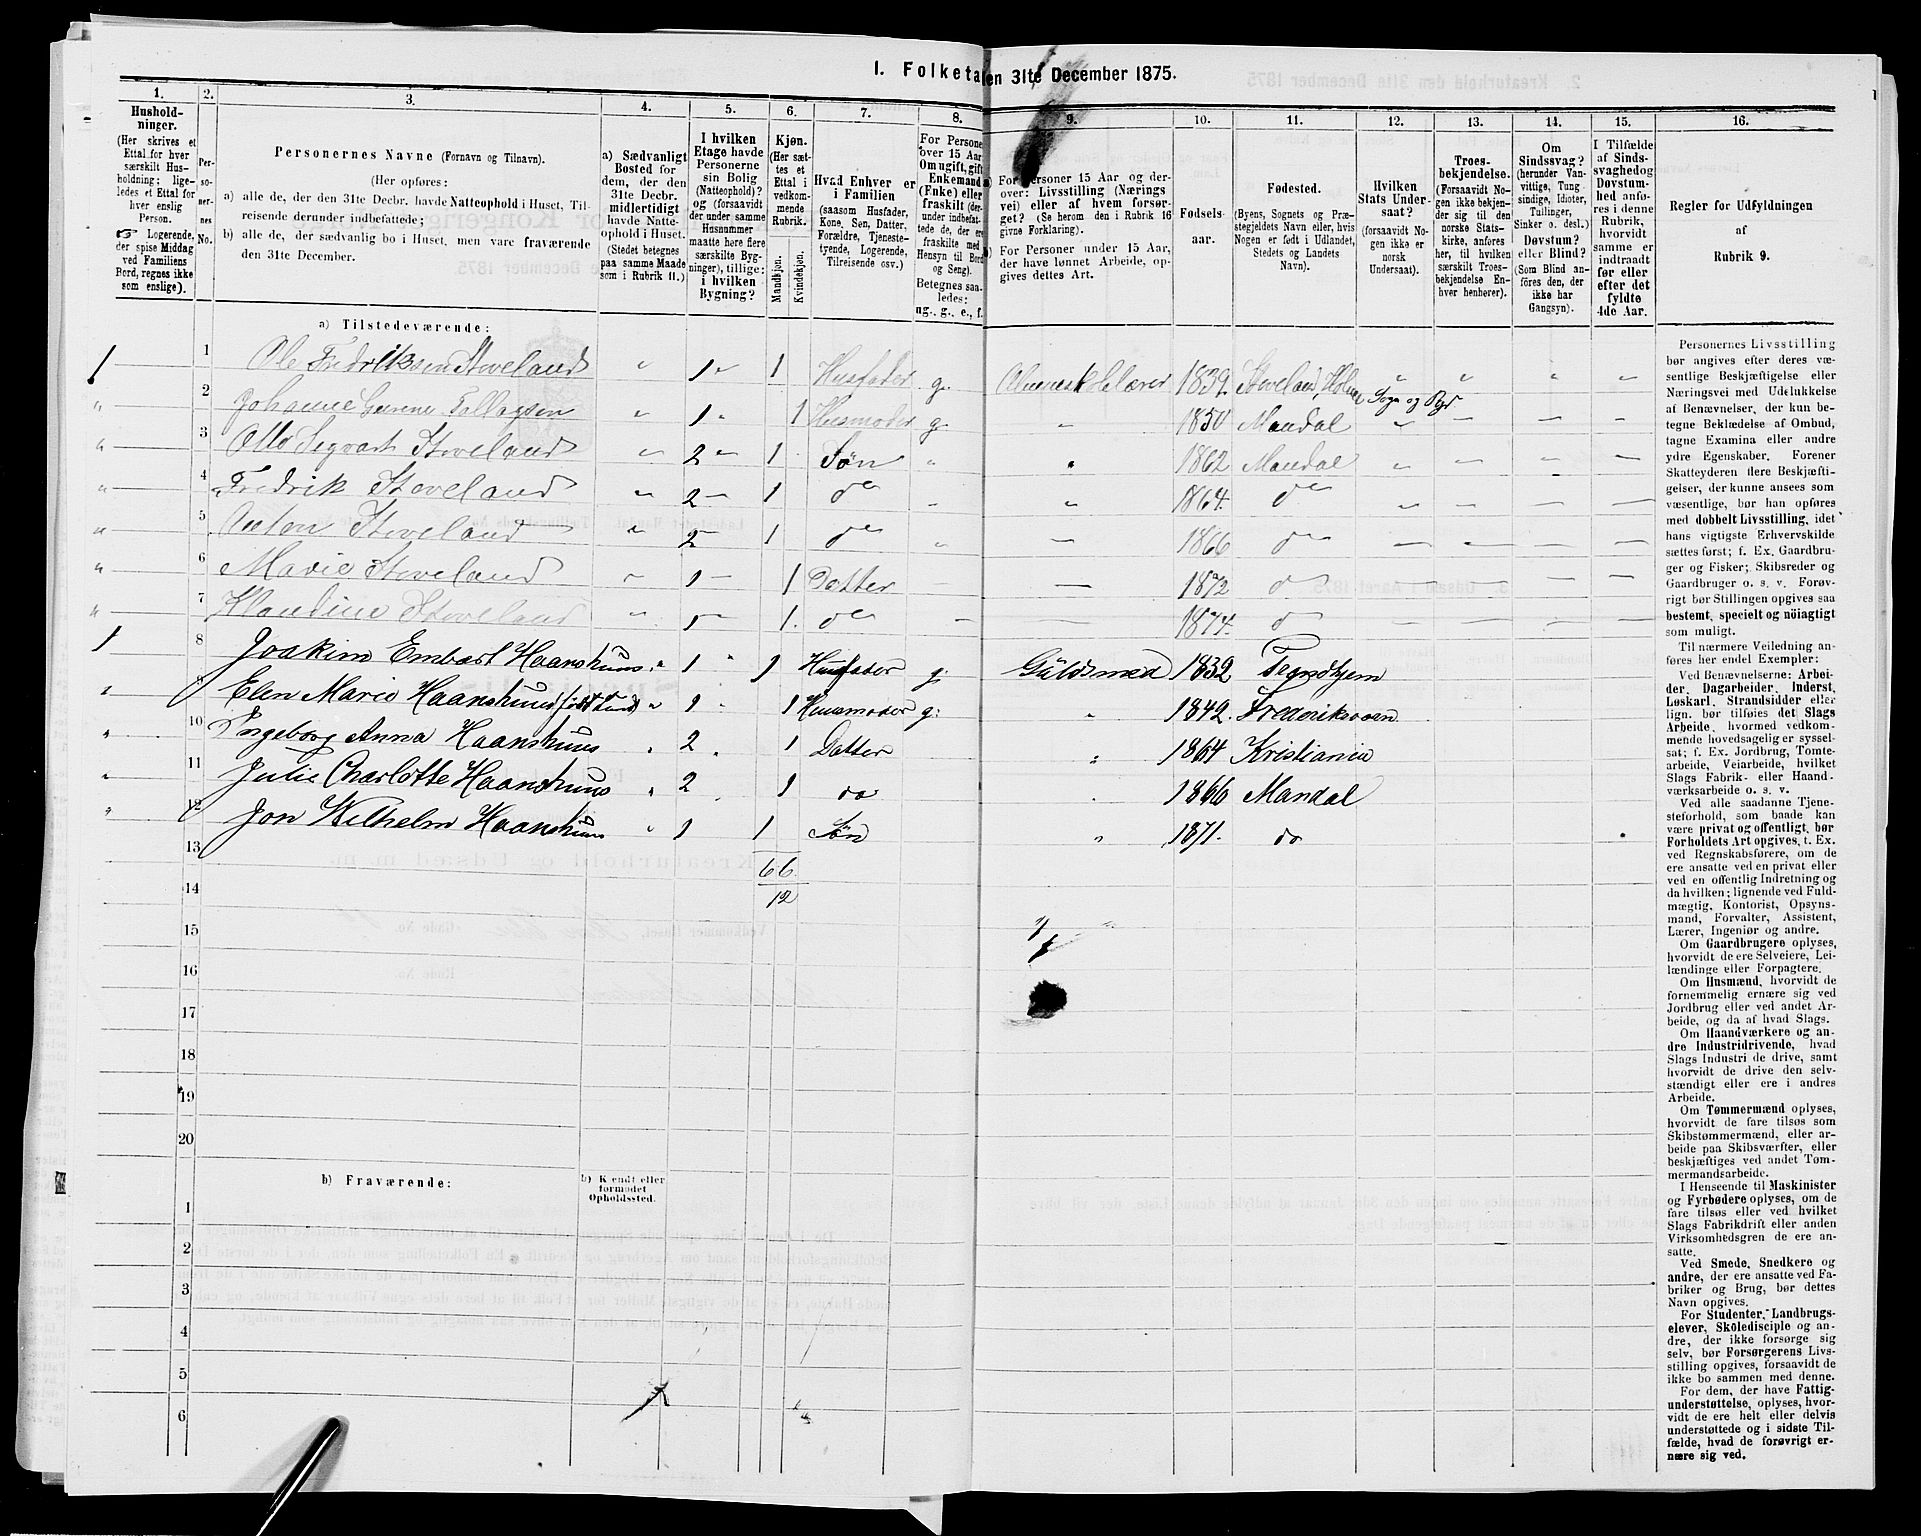 1. Folketallet den 31te December 1875.
1. 2. 3. 4. 5. 6. 7. 8. 9. 10. 11. 12. 13. 14. 15. 16.
Hushold-
ninger.
(Her skrives et
Ettal for hver
særskilt Hus-
holdning; lige-
ledes et Ettal for
hver enslig
Person.
☞ Logerende,
der spise Middag
ved Familiens
Bord, regnes ikke
som enslige).
Per-
so-
ner-
nes
No.
Personernes Navne (Fornavn og Tilnavn).
(Her opføres:
a) alle de, der den 31te Decbr. havde Natteophold i Huset, Til-
reisende derunder indbefattede;
b) alle de, der sædvanlig bo i Huset, men vare fraværende
den 31te December.
a) Sædvanligt
Bosted for
dem, der den
31te Decbr.
midlertidigt
havde Natte-
ophold i Huset.
(Stedet betegnes
paa samme Maade
som i Rubrik 11.)
I hvilken
Etage havde
Personerne
sin Bolig
(Natteophold)?
og (forsaavidt
der under samme
Husnummer
maatte høre flere
særskilte Byg-
ninger), tillige:
i hvilken
Bygning?
Kjøn.
(Her sæt-
tes et
Ettal i
vedkom-
mende
Rubrik.)
Mandkjøn.
Kvindekjøn.
Hvad Enhver er
i Familien
(saasom Husfader,
Kone, Søn, Datter,
Forældre, Tjeneste-
tyende, Logerende,
Tilreisende osv.)
For Persone
over 15 Aar
Om ugift, gift
Enkemand
(Enke) eller
fraskilt (der-
under indbefat-
tede, de, der ere
fraskilte med
Hensyn til Bord
og Seng).
Betegnes saa-
ledes:
ug., g., e., f.
a) For Personer 15 Aar og der-
over: Livsstilling (Nærings
vei) eller af hvem forsør-
get? (Se herom den i Rubrik 16
givne Forklaring).
b) For Personer under 15 Aar,
der have lønnet Arbeide, op-
gives dettes Art.
Fødsels-
aar.
Fødested.
(Byens, Sognets og Præ-
stegjeldets Navn eller, hvis
Nogen er født i Udlandet,
Stedets og Landets
Navn).
Hvilken
Stats Under-
saat?
(forsaavidt No-
gen ikke er
norsk
Undersaat).
Troes-
bekjendelse.
(Forsaavidt No-
gen ikke bekjen-
der sig til den
norske Stats-
kirke, anføres
her, til hvilken
særskilt Troes-
bekjendelse En-
hver henhører).
Om
Sindssvag?
(herunder Van-
vittige, Tung
sindige, Idioter,
Tullinger,
Sinker o. desl.)
Døvstum?
eller Blind?
(Som Blind an-
føres den, der
ikke har
Gangsyn).
I Tilfælde
af Sinds-
svaghed og
Døvstum-
hed anfø-
res i denne
Rubrik,
hvorvidt
samme er
indtraadt
før eller
efter det
fyldte
4de Aar.
Regler for Udfyldningen
af
Rubrik 9.
a) Tilstedeværende:
1 1 Ole Fredriksen Stoveland " 1 " 1 Husfader g. Almueskolelærer 1839 Stoveland, Holme Sogn og Byd
" 2 Johanne Tallagsen " 1 " 1 Husmoder g. " 1850 Mandal
" 3 Otto Stoveland " 2 " 1 Søn " " 1862 Mandal
" 4 Fredrik Stoveland " 2 – 1 do " " 1864. do
" 5 Anton Stoveland " 2 – 1 do " – 1866 do
" 6 Marie Stoveland " 1 – 1 Datter – – 1872 do
" 7 Klaudine Stoveland " 1 – 1. do – – 1874. do
1 8 Joakim Embart Haanshuus " 1 " 1 Husfader g. Guldsmed 1832
" 9 Elen Marie Haanshuus (født Lund) " 1 " 1 Husmoder g. " 1842. Frederiksværn
" 10 Ingeborg Anna Haanshuus " 2 " 1 Datter " 1864 Kristiania
" 11 Julie Charlotte Haanshuus " 2 " 1 do " 1866 Mandal
" 12 Jon Wilhelm Haanshuus " 1 1 Søn " 1871. do
13 6 6
14 12
15
16
17
18
19
20
b) Fraværende:
b) Kjendt eller
formodet
Opholdssted.
1
2
3
4
5
6
Personernes Livsstilling
bør angives efter deres væ-
sentlige Beskjæftigelse eller
Næringsvei med Udelukkelse
af Benævnelser, der kun be-
tegne Beklædelse af Ombud,
tagne Examina eller andre
ydre Egenskaber. Forener
Skatteyderen flere Beskjæfti-
gelser, der kunne ansees som
væsentlige, bør han opføres
med dobbelt Livsstilling, idet
hans vigtigste Erhvervskilde
sættes først; f. Ex. Gaardbru-
ger og Fisker; Skibsreder og
Gaardbruger o. s. v. Forøv-
rigt bør Stillingen opgives saa
bestemt, specielt og nöiagtigt
som muligt.
Til nærmere Veiledning an-
føres her endel Exempler:
Ved Benævnelserne: Arbei-
der, Dagarbeider, Inderst,
Løskarl, Strandsidder eller
lign. bør tilføies det Slags
Arbeide, hvormed vedkom-
mende hovedsagelig er syssel-
sat; f. Ex. Jordbrug, Tomte-
arbeide, Veiarbeide, hvilket
Slags Fabrik- eller Haand-
værksarbeide o. s. v.
Ved alle saadanne Tjene-
steforhold, som baade kan
være privat og offentligt, bør
Forholdets Art opgives, t. Ex.
ved Regnskabsførere, om de
ere ansatte ved en privat eller
ved en offentlig Indretning og
da hvilken; lignende ved Fuld-
mægtig, Kontorist, Opsyns-
mand, Forvalter, Assistent,
Lærer, Ingeniør og andre.
Om Gaardbrugere oplyses,
hvorvidt de ere Selveiere, Lei-
lændinge eller Forpagtere.
Om Husmænd, hvorvidt de
fornemmelig ernære sig ved
Jordbrug eller ved andet Ar-
beide, og da af hvad Slags.
Om Haandværkere og an-
dre Industridrivende, hvad
Slags Industri de drive, samt
hvorvidt de drive den selv-
stændigt eller ere i andres
Arbeide.
Om Tømmermænd oplyses,
hvorvidt de fare tilsøs som
Skibstømmermænd, eller ar-
beide paa Skibsværfter, eller
beskjæftiges ved andet Tøm-
mermandsarbeide.
I Henseende til Maskinister
og Fyrbødere oplyses, om de
fare tilsøs eller ved hvilket
Slags Fabrikdrift eller anden
Virksomhedsgren de ere an-
satte.
Ved Smede, Snedkere og
andre, der ere ansatte ved Fa-
briker og Brug, bør dettes
Navn opgives.
For Studenter, Landbrugs-
elever, Skoledisciple og an-
dre, der ikke forsørge sig
selv, bør Forsørgerens Livs-
stilling opgives, forsaavidt de
ikke bo sammen med denne.
For dem, der have Fattig-
understøttelse, oplyses, hvor-
vidt de ere helt eller delvis
understøttede og i sidste Til-
fælde, hvad de forøvrigt er-
nære sig ved.